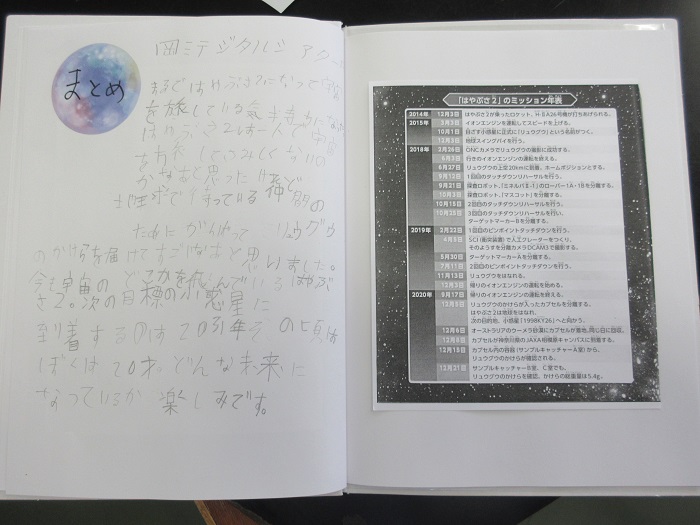 まとめ
岡三デジタルシアター
まるではやぶさ2になって宇宙
を旅している気持ちになった。
はやぶさ2は一人で宇宙
さみしくない
かなあと思った!!
地球で待っている
ためにがんばって リュウグウ
のかけらを届けてすごいなあと思いました。
今も宇宙のどこかを飛んでいるはやぶ
さ2。次の目標の小惑星に
到着するのは2031年その頃は
ぼくは20才。どんな未来に
なっているか 楽しみです。
「はやぶさ2」のミッション年表
2014年 12月3日 はやぶさ2が乗ったロケット、H-ⅡA26号機が打ちあげられる。
2015年 3月3日 イオンエンジンの運転してスピードを上げる。
10月1日 目ざす小惑星に正式に「リュウグウ」という名前がつく。
12月3日 地球スイングバイを行う。
2018年 2月26日 ONCカメラでリュウグウの撮影に成功する。
6月3日 行きのイオンエンジンの運転を終える。
6月27日 リュウグウの上空20kmに到着、ホームポジションとする。
9月12日 1回目のタッチダウンリハーサルを行う。
9月21日 探査ロボット、「ミネルバⅡ-1」のローバー1A・1Bを分離する。
10月3日 探査ロボット、「マスコット」を分離する。
10月15日 2回目のタッチダウンリハーサルを行う。
10月25日 3回目のタッチダウンリハーサルを行い、
ターゲットマーカーBを分離する。
2019年 2月22日 1回目のピンポイントタッチダウンを行う。
4月5日 SCI(衝突装置)で人工クレーターをつくり、
そのようすを分離カメラDCAM3で撮影する。
5月30日 ターゲットマーカーAを分離する。
7月11日 2回目のピンポイントタッチダウンを行う。
11月13日 リュウグウをはなれる。
12月3日 帰りのイオンエンジンの運転を始める。
2020年 9月17日 帰りのイオンエンジンの運転を終える。
12月5日 リュウグウのかけらが入ったカプセルを分離する。
はやぶさ2は地球をはなれ、
次の目的地、小惑星「1998KY26」へと向かう。
12月6日 オーストラリアのウーメラ砂漠にカプセルが着地、同じ日に回収。
12月8日 カプセルが神奈川県のJAXA相模原キャンパスに到着する。
12月15日 カプセル内の容器(サンプルキャッチャーA室)から、
リュウグウのかけらが確認される。
12月21日 サンプルキャッチャーB室、C室でも、
リュウグウのかけらを確認。かけらの総重量は5.4g。